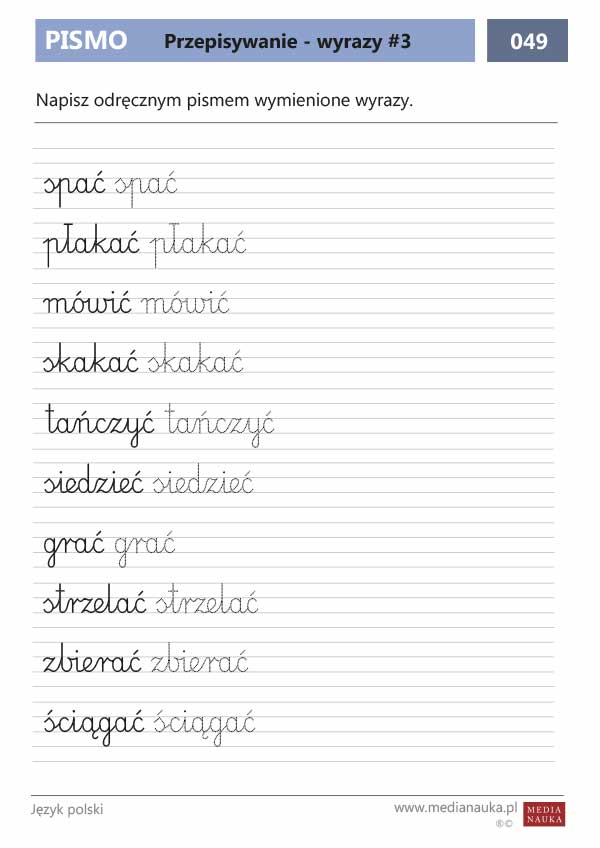 PISMO Przepisywanie - wyrazy #3 049
Napisz odręcznym pismem wymienione wyrazy.
spać spać
płakać płakać
mówić mówić
skakać skakać
tańczyć tańczyć
siedzieć siedzieć
grać grać
strzelać strzelać
zbierać zbierać
ściągać ściągać
Język polski www.medianauka.pl MEDIA
®© NAUKA